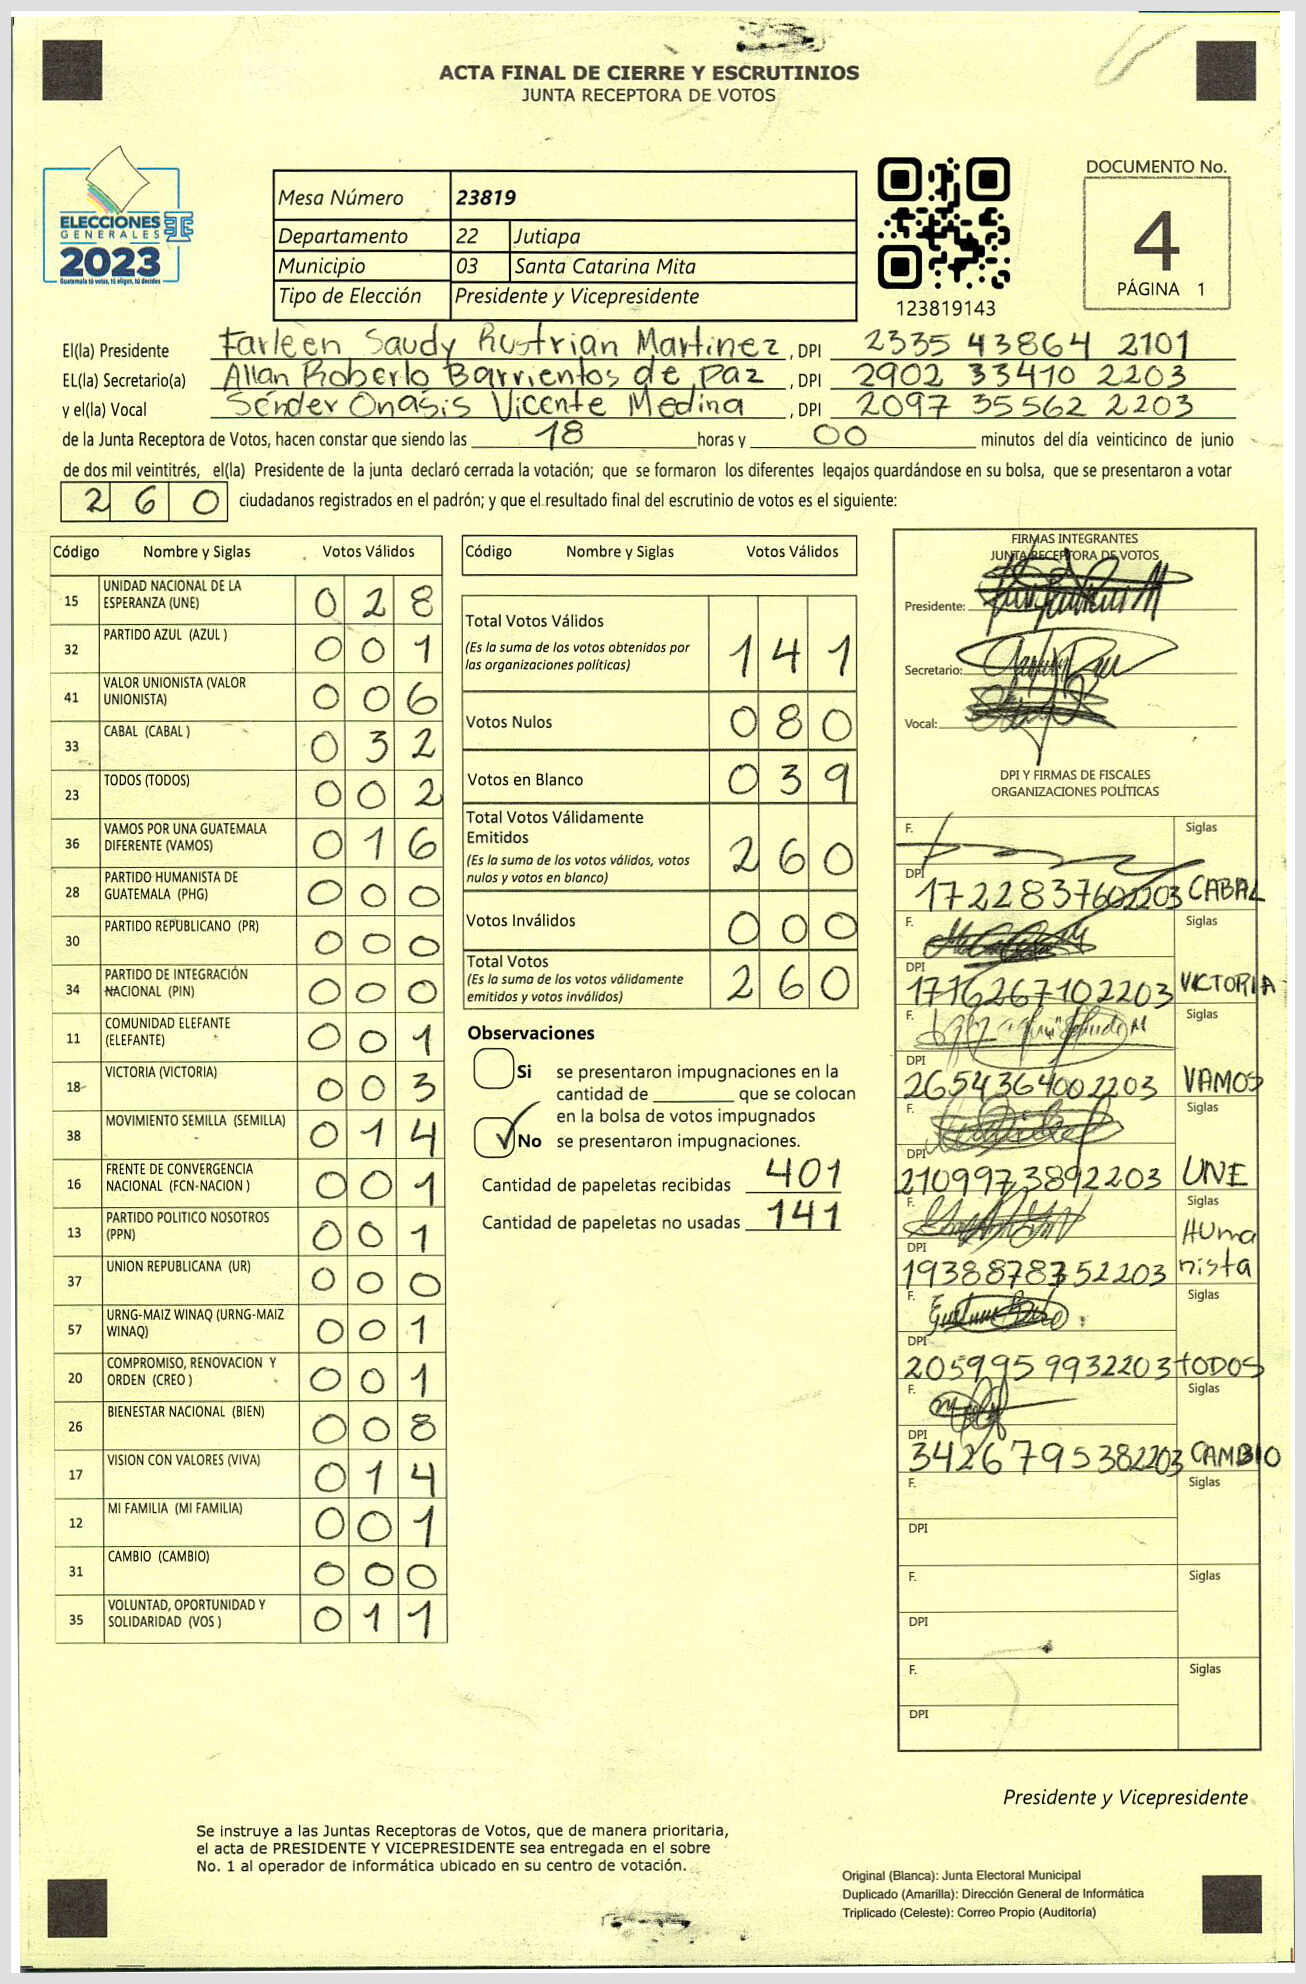 ACTA FINAL DE CIERRE Y ESCRUTINIOS
JUNTA RECEPTORA DE VOTOS
ELECCIONES
GENERALES
2023
Guatemala tú votas, tú eliges, tú decides
Mesa Número 23819
Departamento 22 Jutiapa
Municipio 03 Santa Catarina Mita
Tipo de Elección Presidente y Vicepresidente
123819143
DOCUMENTO No.
4
PÁGINA 1
El(la) Presidente Farleen Saudy Rustrian Martinez, DPI 2335 43864 2101
EL(la) Secretario(a) Allan Roberto Barrientos de paz, DPI 2902 33410 2203
y el(la) Vocal Sénder Onasis Vicente Medina, DPI 2097 35562 2203
de la Junta Receptora de Votos, hacen constar que siendo las 18 horas y 00 minutos del día veinticinco de junio
de dos mil veintitrés, el(la) Presidente de la junta declaró cerrada la votación; que se formaron los diferentes legajos guardándose en su bolsa, que se presentaron a votar
260 ciudadanos registrados en el padrón; y que el resultado final del escrutinio de votos es el siguiente:
Código Nombre y Siglas Votos Válidos
15 UNIDAD NACIONAL DE LA
ESPERANZA (UNE) 028
32 PARTIDO AZUL (AZUL ) 001
41 VALOR UNIONISTA (VALOR
UNIONISTA) 006
33 CABAL (CABAL ) 032
23 TODOS (TODOS) 002
36 VAMOS POR UNA GUATEMALA
DIFERENTE (VAMOS) 016
28 PARTIDO HUMANISTA DE
GUATEMALA (PHG) 000
30 PARTIDO REPUBLICANO (PR) 000
34 PARTIDO DE INTEGRACIÓN
NACIONAL (PIN) 000
11 COMUNIDAD ELEFANTE
(ELEFANTE) 001
18 VICTORIA (VICTORIA) 003
38 MOVIMIENTO SEMILLA (SEMILLA) 014
16 FRENTE DE CONVERGENCIA
NACIONAL (FCN-NACION ) 001
13 PARTIDO POLITICO NOSOTROS
(PPN) 001
37 UNION REPUBLICANA (UR) 000
57 URNG-MAIZ WINAQ (URNG-MAIZ
WINAQ) 001
20 COMPROMISO, RENOVACION Y
ORDEN (CREO ) 001
26 BIENESTAR NACIONAL (BIEN) 008
17 VISION CON VALORES (VIVA) 014
12 MI FAMILIA (MI FAMILIA) 001
31 CAMBIO (CAMBIO) 000
35 VOLUNTAD, OPORTUNIDAD Y
SOLIDARIDAD (VOS ) 011
Código Nombre y Siglas Votos Válidos
Total Votos Válidos
(Es la suma de los votos obtenidos por
las organizaciones políticas) 141
Votos Nulos 080
Votos en Blanco 039
Total Votos Válidamente
Emitidos
(Es la suma de los votos válidos, votos
nulos y votos en blanco) 260
Votos Inválidos 000
Total Votos
(Es la suma de los votos válidamente
emitidos y votos inválidos) 260
Observaciones
Si se presentaron impugnaciones en la
cantidad de ________ que se colocan
en la bolsa de votos impugnados
No se presentaron impugnaciones.
Cantidad de papeletas recibidas 401
Cantidad de papeletas no usadas 141
FIRMAS INTEGRANTES
JUNTA RECEPTORA DE VOTOS
Presidente:
Secretario:
Vocal:
DPI Y FIRMAS DE FISCALES
ORGANIZACIONES POLÍTICAS
F. Siglas
DPI 1722837602203 CABAL
F. Siglas
DPI 1776267102203 VICTORIA
F. Siglas
DPI 2654364002203 VAMOS
F. Siglas
DPI 2109973892203 UNE
F. Siglas
DPI 1938878352203 Humanista
F. Siglas
DPI 2059959932203 TODOS
F. Siglas
DPI 3426795382203 CAMBIO
F. Siglas
DPI
F. Siglas
DPI
F. Siglas
DPI
Presidente y Vicepresidente
Se instruye a las Juntas Receptoras de Votos, que de manera prioritaria,
el acta de PRESIDENTE Y VICEPRESIDENTE sea entregada en el sobre
No. 1 al operador de informática ubicado en su centro de votación.
Original (Blanca): Junta Electoral Municipal
Duplicado (Amarilla): Dirección General de Informática
Triplicado (Celeste): Correo Propio (Auditoría)